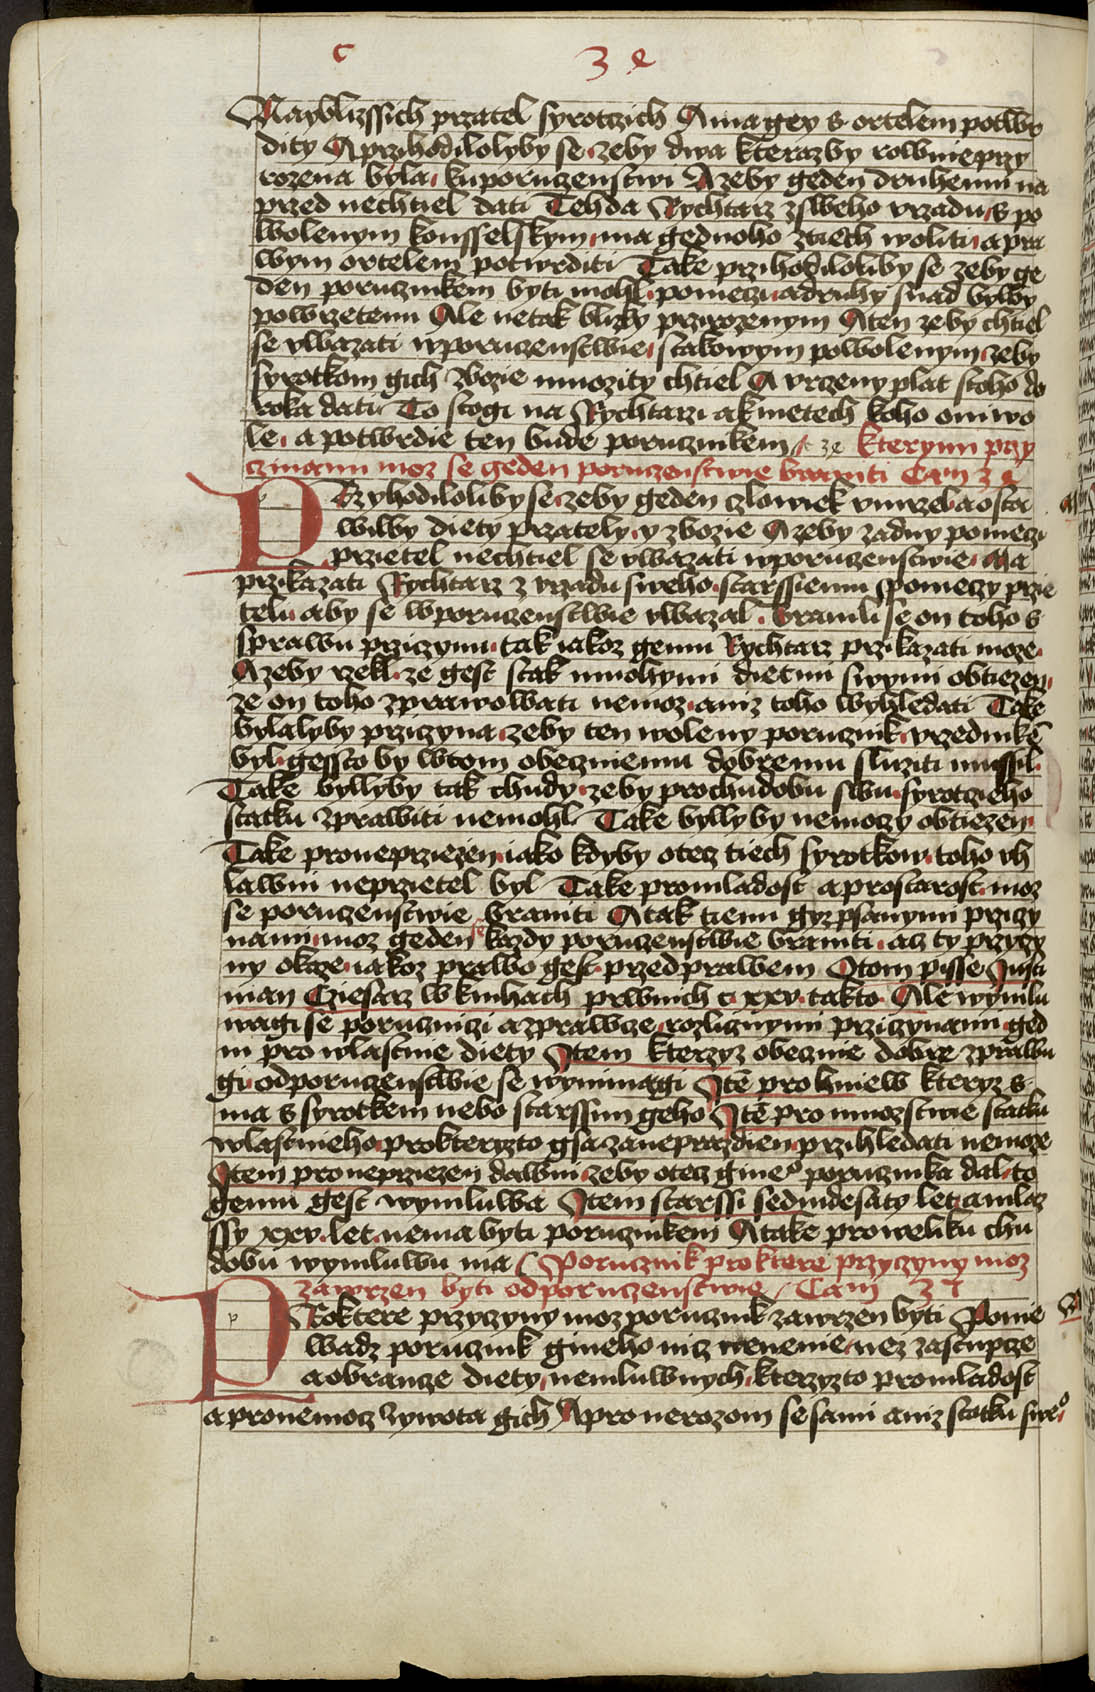 c 3 e
Nayblizssich przatel syrotczich A ma gey s ortelem potwr
dity A przihodilolyby se zeby dwa kterazby rownie przy
rozena byla kuporuczenstwi A zeby geden druhemu na
przed nechtiel dati Tehda Rychtarz zsweho vrzadu s po
wolenym konsselskym ma gednoho ztiech woliti a pra
wym ortelem potwrditi Take przihodiloliby se zeby ge
den porucznikem byti mohl po meczi a druhy snad bylby
po wrzetenu Ale netak blizky przirozenym A ten zeby chtiel
se vwazati wporuczenstwie stakowym powolenym zeby
syrotkom gich zbozie mnozity chtiel A vrczeny plat stoho do
roka dati To stogi na Rychtarzi a kmetech koho oni wo
le a potwrdie ten bude porucznikem c ze kterymi przy
czinami moz se geden poruczenstwie braniti Cam 3 e
PRzyhodiloliby se zeby geden czlowiek vmrzel a osta
wilby diety przately y zbozie A zeby zadny po meczi
przietel nechtiel se vwazati wporuczenstwie Ma
przikazati Rychtarz z vrzadu sweho starssiemu po meczy przie
teli aby se wporuczenstwie vwazal Branili se on toho s
sprawu przicziny tak iakoz gemu Rychtarz przikazati moze
A zeby rzekl ze gest stak mnohymi dietmi swymi obtiezen
ze on toho zprawowati nemoz aniz toho wyhledati Take
bylalyby przyczyna zeby ten woleny porucznik vrzednikē
byl gessto by wtom obecznemu dobremu sluziti mussil
Take byllyby tak chudy zeby prochudobu swu syrotczieho
statku zprawiti nemohl Take byllyby nemoczy obtiezen
Take proneprziezen iako kdyby otecz tiech syrotkow toho vh
lawni neprzietel byl Take promladost a prostarost moz
se poruczenstwie braniti A tak tiemi gyz psanymi przyczy
nami moz geden se kazdy poruczenstwie braniti acz ty przyczy
ny okaze iakoz prawo gest przed prawem O tom pisse Justi
nian Cziesarz w knihach prwnich c xxv takto Ale wymlu
wagi se porucznici a zprawcze rozlicznymi przyczynami ged
ni pro wlastnie diety Item kterzyz obecznie dobre zprawu
gi od poruczenstwie se wynimagi Itē pro hniew kteryz s
ma s syrotkem nebo starssim geho Itē pro mnozstwie statku
wlastnieho prokteryzto gsa zaneprazdien przihledati nemoze
Item proneprziezen dawni zeby otecz gineº porucznika dal to
gemu gest wymluwa Item starssi sedmdesaty let a mlaz
ssy xxv let nema byti porucznikem A take proweliku chu
dobu wymluwu ma Porucznik proktere przyczyny moz
zawrzen byti odporuczenstwie Cam 37
PRoktere przyczyny moz porucznik zawrzen byti Ponie
wadz porucznik gineho nicz nenie nez zastupcze
a obrancze diety nemluwnych kterzyzto promladost
a pronemocz zywota gich A pro nerozom se sami aniz statku sweº